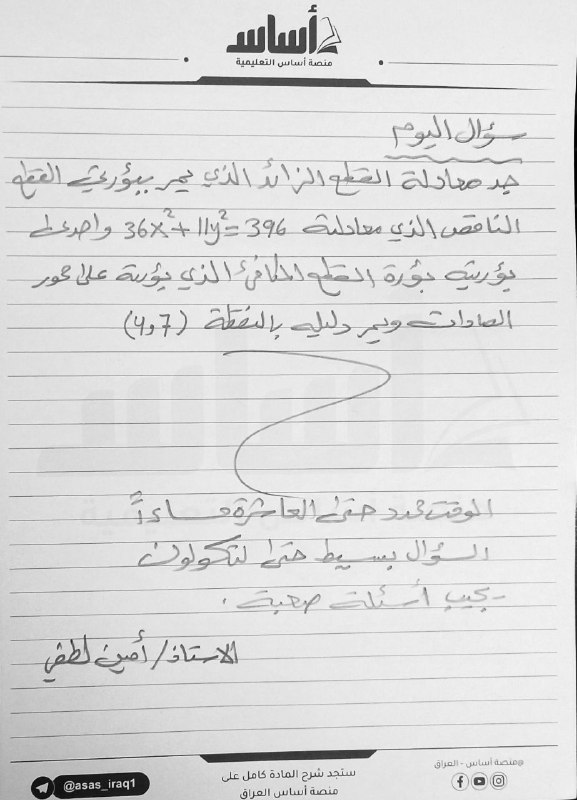 أساس
منصة أساس التعليمية
سؤال اليوم
جد معادلة القطع الزائد الذي يمر ببؤرتي القطع
الناقص الذي معادلته 36x²+11y²=396 واحدى
بؤرتيه بؤرة القطع المكافئ الذي بؤرته على محور
الصادات ويمر دليله بالنقطة (4,7)
الوقت محدد حتى العاشرة مساءاً
السؤال بسيط حتى لتكولون
يجيب أسئلة صعبة .
الاستاذ/ أمين لطفي
@منصة أساس - العراق
ستجد شرح المادة كامل على
منصة أساس العراق
@asas_iraq1